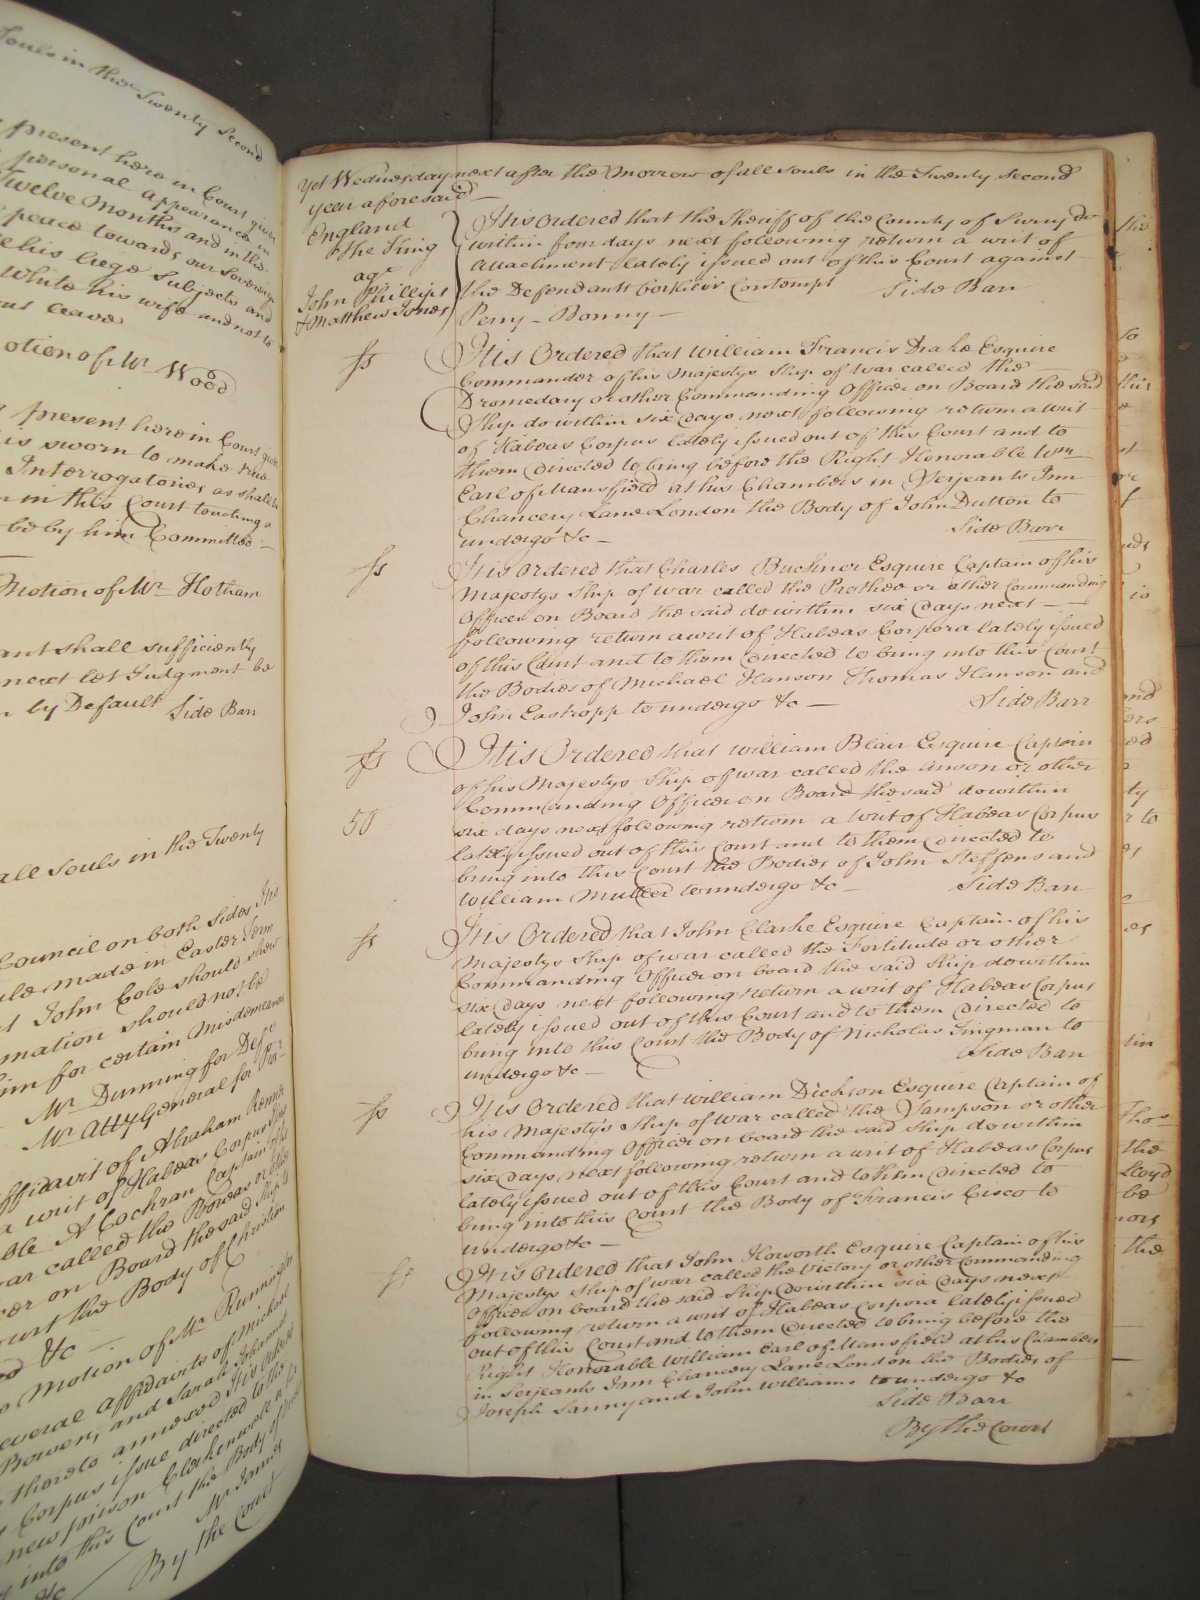 Souls in the Twenty Second
present here in Court
personal appearance in
Twelve Months and in the
peace towards our Sovereign
his liege Subjects and
White his wife and not to
leave
otion of Mr Wood
present here in Court
is sworn to make true
Interrogatories as shall
in this Court touching
be by him Committed
Motion of Mr Hotham
ant shall sufficiently
next let Judgment be
by Default
Side Barr
all Souls in the Twenty
Council on both Sides Itis
made in Easter Term
John Cole should shew
mation should not be
him for certain Misdemeanors
Mr Dunning for Deft
Mr Atty General for
ffidavit of Abraham
a writ of Habeas Corpus
ble A Cochran Captain
war called the Boreas or
on Board the said Ship
Court the Body of Christian
&c
Motion of Mr Runnington
everal affidavits of Michael
Bowen, and Sarah
thereto annexed It is Ordered
Corpus issue directed to the
new prison Clerkenwell
into this Court the Body of
&c Mr James
By the Court
Yet Wednesday next after the Morrow of all Souls in the Twenty Second
year aforesaid
England
The King
agt
John Phillips
& Matthew Jones
It is Ordered that the Sheriff of the County of Surry do
within four days next following return a writ of
Attachment lately issued out of this Court against
the Defendants for their Contempt Side Barr
Perry - Bonny
fs
It is Ordered that William Francis Drake Esquire
Commander of his Majestys Ship of War called the
Dromedary or other Commanding Officer on Board the said
Ship do within six days next following return a writ
of Habeas Corpus lately issued out of this Court and to
them directed to bring before the Right Honorable Wm
Earl of Mansfield at his Chambers in Serjeants Inn
Chancery Lane London the Body of John Dutton to
undergo &c Side Barr
fs
It is Ordered that Charles Buckner Esquire Captain of his
Majestys Ship of War called the Prothee or other Commanding
Officer on Board the said do within six days next
following return a writ of Habeas Corpora lately issued
of this Court and to them directed to bring into this Court
the Bodies of Michael Hanson Thomas Hanson and
John Eastropp to undergo &c Side Barr
fs
It is Ordered that William Blair Esquire Captain
of his Majestys Ship of war called the Anson or other
Commanding Officer on Board the said do within
50
six days next following return a writ of Habeas Corpus
lately issued out of this Court and to them directed to
bring into this Court the Bodies of John Steffens and
William Muller to undergo &c Side Barr
fs
It is Ordered that John Clarke Esquire Captain of his
Majestys Ship of war called the Fortitude or other
Commanding Officer on board the said Ship do within
six days next following return a writ of Habeas Corpus
lately issued out of this Court and to them directed to
bring into this Court the Body of Nicholas Singman to
undergo &c Side Barr
fs
It is Ordered that William Dickson Esquire Captain of
his Majestys Ship of war called the Sampson or other
Commanding Officer on board the said Ship do within
six days next following return a writ of Habeas Corpus
lately issued out of this Court and to him directed to
bring into this Court the Body of Francis Cisco to
undergo &c
fs
It is Ordered that John Howorth Esquire Captain of his
Majestys Ship of war called the Victory or other Commanding
Officer on board the said Ship do within six days next
following return a writ of Habeas Corpora lately issued
out of this Court and to them directed to bring before the
Right Honorable William Earl of Mansfield at his Chambers
in Serjeants Inn Chancery Lane London the Bodies of
Joseph Sanny and John Williams to undergo &c
Side Barr
By the Court